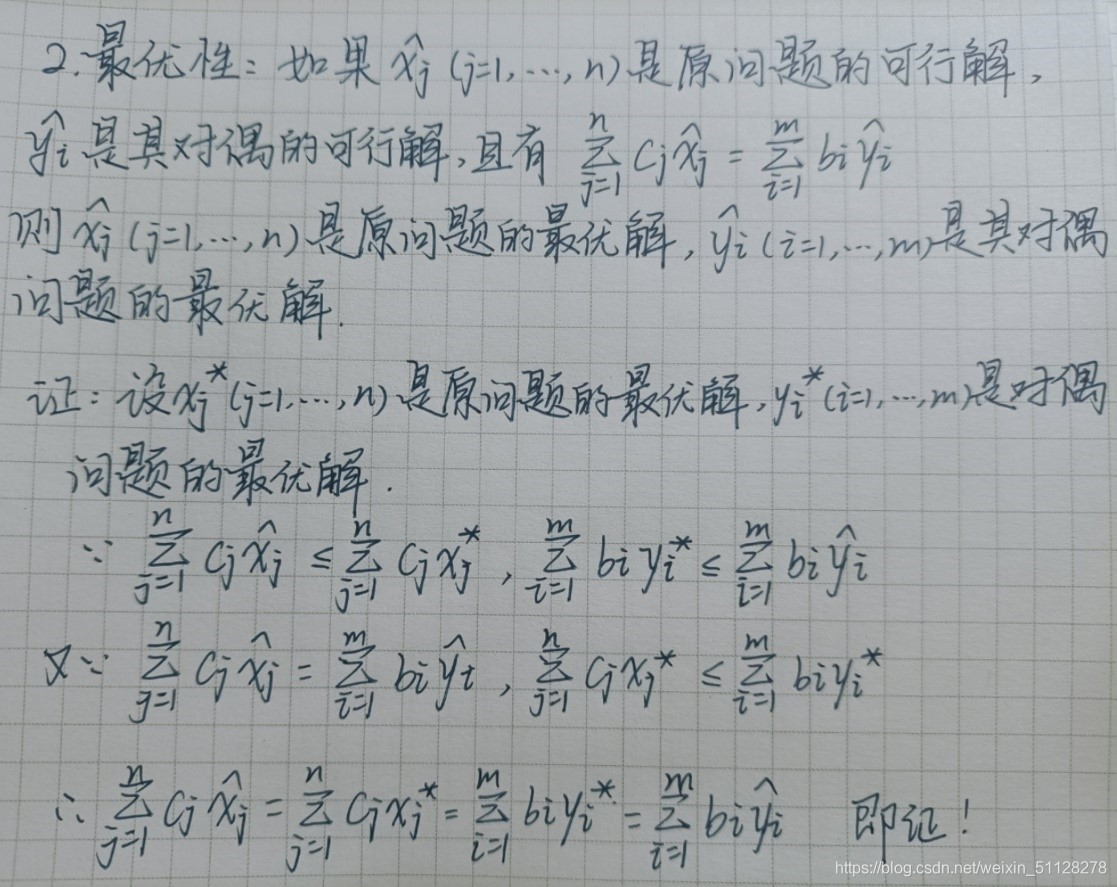 2.最优性：如果 x̂ⱼ (j=1,…,n) 是原问题的可行解，
ŷᵢ 是其对偶的可行解，且有 ∑ⱼ₌₁ⁿ cⱼx̂ⱼ = ∑ᵢ₌₁ᵐ bᵢŷᵢ
则 x̂ⱼ (j=1,…,n) 是原问题的最优解，ŷᵢ (i=1,…,m) 是其对偶
问题的最优解.
证：设 xⱼ* (j=1,…,n) 是原问题的最优解，yᵢ* (i=1,…,m) 是对偶
问题的最优解.
∵ ∑ⱼ₌₁ⁿ cⱼx̂ⱼ ≤ ∑ⱼ₌₁ⁿ cⱼxⱼ* , ∑ᵢ₌₁ᵐ bᵢyᵢ* ≤ ∑ᵢ₌₁ᵐ bᵢŷᵢ
又∵ ∑ⱼ₌₁ⁿ cⱼx̂ⱼ = ∑ᵢ₌₁ᵐ bᵢŷᵢ , ∑ⱼ₌₁ⁿ cⱼxⱼ* ≤ ∑ᵢ₌₁ᵐ bᵢyᵢ*
∴ ∑ⱼ₌₁ⁿ cⱼx̂ⱼ = ∑ⱼ₌₁ⁿ cⱼxⱼ* = ∑ᵢ₌₁ᵐ bᵢyᵢ* = ∑ᵢ₌₁ᵐ bᵢŷᵢ 即证！
https://blog.csdn.net/weixin_51128278